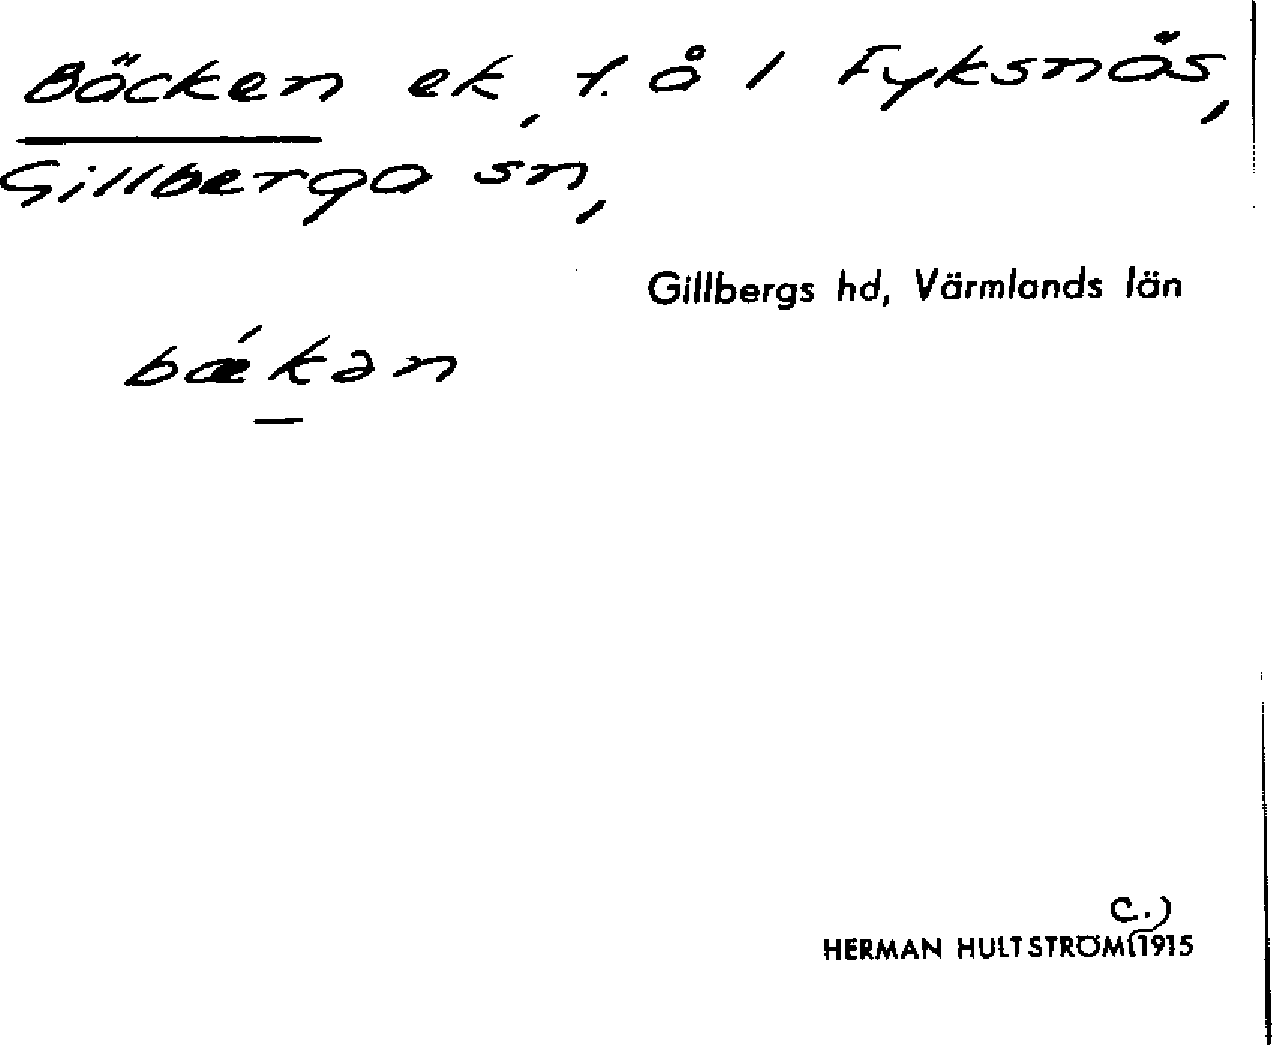 Bäcken ek, f. å i Fyksnäs,
Gillberga sn,
Gillbergs hd, Värmlands län
bǽkən
c.)
HERMAN HULTSTRÖM 1915